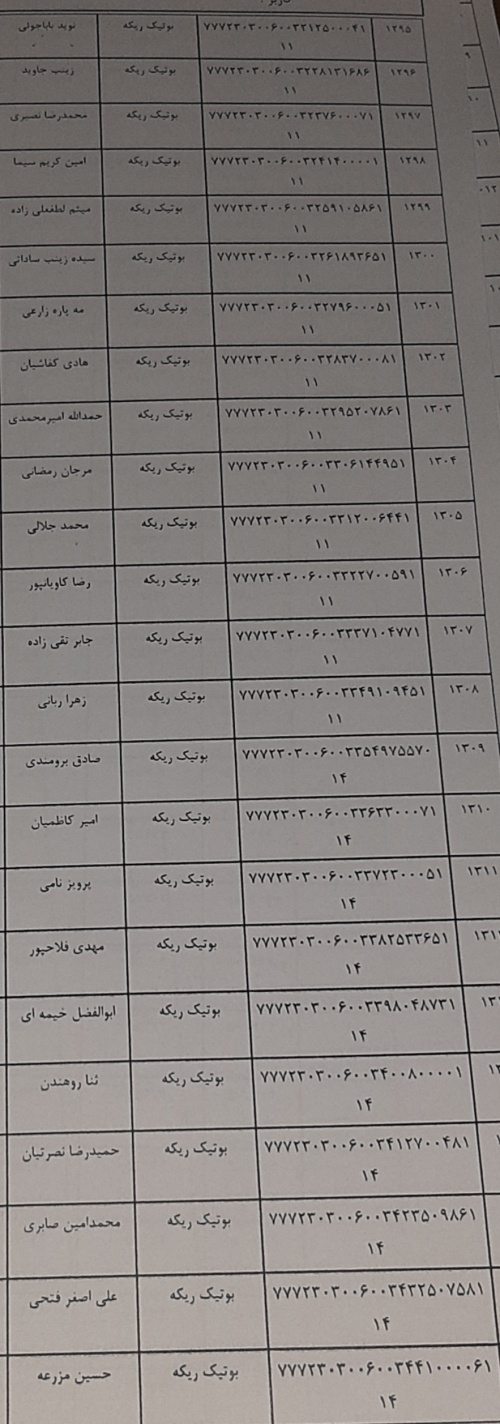 ۱۲۹۵ ۷۷۷۲۳۰۳۰۰۶۰۰۳۲۱۲۵۰۰۰۴۱ بوتیک ریکه نوید باباجوئی
۱۱
۱۲۹۶ ۷۷۷۲۳۰۳۰۰۶۰۰۳۲۲۸۱۳۱۶۸۶ بوتیک ریکه زینب جاوید
۱۱
۱۲۹۷ ۷۷۷۲۳۰۳۰۰۶۰۰۳۲۳۷۶۰۰۰۷۱ بوتیک ریکه محمدرضا نصیری
۱۱
۱۲۹۸ ۷۷۷۲۳۰۳۰۰۶۰۰۳۲۴۱۴۰۰۰۰۱ بوتیک ریکه امین کریم سیما
۱۱
۱۲۹۹ ۷۷۷۲۳۰۳۰۰۶۰۰۳۲۵۹۱۰۵۸۶۱ بوتیک ریکه میثم لطفعلی زاده
۱۱
۱۳۰۰ ۷۷۷۲۳۰۳۰۰۶۰۰۳۲۶۱۸۹۳۶۵۱ بوتیک ریکه سیده زینب ساداتی
۱۱
۱۳۰۱ ۷۷۷۲۳۰۳۰۰۶۰۰۳۲۷۹۶۰۰۰۵۱ بوتیک ریکه مه پاره زارعی
۱۱
۱۳۰۲ ۷۷۷۲۳۰۳۰۰۶۰۰۳۲۸۳۷۰۰۰۸۱ بوتیک ریکه هادی کفاشیان
۱۱
۱۳۰۳ ۷۷۷۲۳۰۳۰۰۶۰۰۳۲۹۵۲۰۷۸۶۱ بوتیک ریکه حمدالله امیرمحمدی
۱۱
۱۳۰۴ ۷۷۷۲۳۰۳۰۰۶۰۰۳۳۰۶۱۴۴۹۵۱ بوتیک ریکه مرجان رمضانی
۱۱
۱۳۰۵ ۷۷۷۲۳۰۳۰۰۶۰۰۳۳۱۲۰۰۶۴۴۱ بوتیک ریکه محمد جلالی
۱۱
۱۳۰۶ ۷۷۷۲۳۰۳۰۰۶۰۰۳۳۲۲۷۰۰۵۹۱ بوتیک ریکه رضا کاویانپور
۱۱
۱۳۰۷ ۷۷۷۲۳۰۳۰۰۶۰۰۳۳۳۷۱۰۴۷۷۱ بوتیک ریکه جابر تقی زاده
۱۱
۱۳۰۸ ۷۷۷۲۳۰۳۰۰۶۰۰۳۳۴۹۱۰۹۴۵۱ بوتیک ریکه زهرا ربانی
۱۱
۱۳۰۹ ۷۷۷۲۳۰۳۰۰۶۰۰۳۳۵۴۹۷۵۵۷۰ بوتیک ریکه صادق برومندی
۱۴
۱۳۱۰ ۷۷۷۲۳۰۳۰۰۶۰۰۳۳۶۳۳۰۰۰۷۱ بوتیک ریکه امیر کاظمیان
۱۴
۱۳۱۱ ۷۷۷۲۳۰۳۰۰۶۰۰۳۳۷۲۳۰۰۰۵۱ بوتیک ریکه پرویز نامی
۱۴
۷۷۷۲۳۰۳۰۰۶۰۰۳۳۸۲۵۳۳۶۵۱ بوتیک ریکه مهدی فلاحپور
۱۴
۷۷۷۲۳۰۳۰۰۶۰۰۳۳۹۸۰۴۸۷۳۱ بوتیک ریکه ابوالفضل خیمه ای
۱۴
۷۷۷۲۳۰۳۰۰۶۰۰۳۴۰۰۸۰۰۰۰۱ بوتیک ریکه ثنا روهندن
۱۴
۷۷۷۲۳۰۳۰۰۶۰۰۳۴۱۲۷۰۰۴۸۱ بوتیک ریکه حمیدرضا نصرتیان
۱۴
۷۷۷۲۳۰۳۰۰۶۰۰۳۴۲۳۵۰۹۸۶۱ بوتیک ریکه محمدامین صابری
۱۴
۷۷۷۲۳۰۳۰۰۶۰۰۳۴۳۲۵۰۷۵۸۱ بوتیک ریکه علی اصغر فتحی
۱۴
۷۷۷۲۳۰۳۰۰۶۰۰۳۴۴۱۰۰۰۰۶۱ بوتیک ریکه حسین مزرعه
۱۴